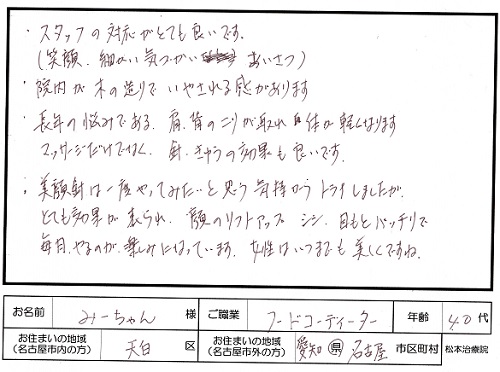 ・スタッフの対応がとても良いです。
(笑顔、細かい気づかい あいさつ)
・院内が木の造りでいやされる感があります
・長年の悩みである、肩、背のコリが取れ 身体が軽くなります
マッサージだけでなく、針、きゅうの効果も良いです。
・美顔針は一度やってみたいと思う気持からトライしましたが、
とても効果が表られ、顔のリフトアップ シミ、目もとパッチリで
毎月、やるのが、楽しみになっています。女性はいつまでも美しくですね。
お名前 みーちゃん 様 ご職業 フードコーディネーター 年齢 40代
お住まいの地域(名古屋市内の方) 天白 区 お住まいの地域(名古屋市外の方) 愛知 県 名古屋 市区町村 松本治療院